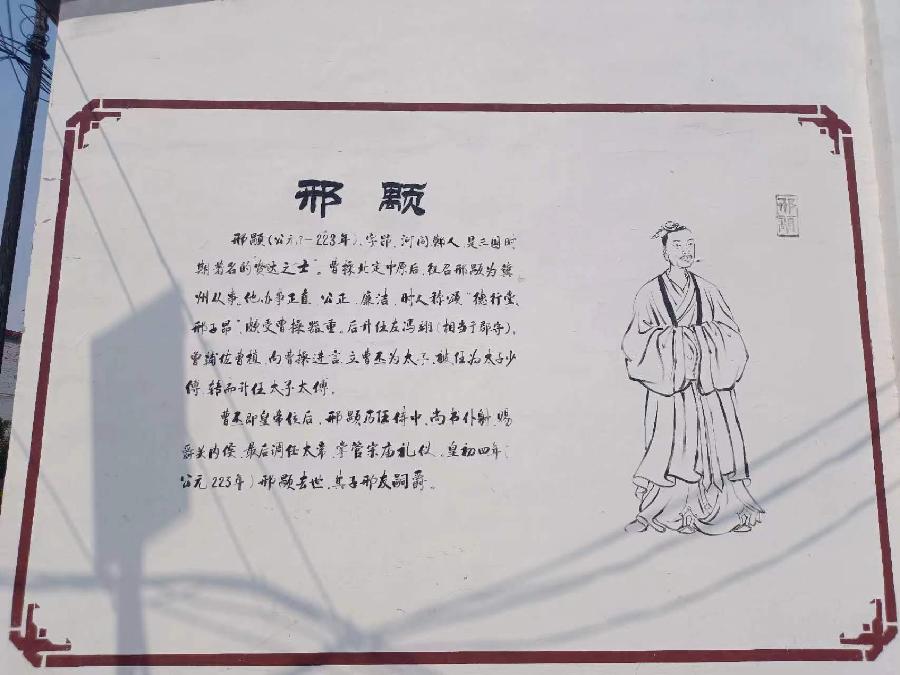 邢颙
邢颙（公元？—223年）、字昂、河间鄚人、是三国时
期著名的“豁达之士”。曹操北定中原后、征召邢颙为冀
州从事、他办事正直、公正、廉洁、时人称颂“德行堂堂
邢子昂”颇受曹操器重。后升任左冯翊（相当于郡守）、
曾辅佐曹植、向曹操进言、立曹丕为太子、被任为太子少
傅、转而升任太子太傅。
曹丕即皇帝位后、邢颙历任侍中、尚书仆射、赐
爵关内侯、最后调任太常、掌管宗庙礼仪、皇初四年（
公元223年）邢颙去世、其子邢友嗣爵。
邢颙